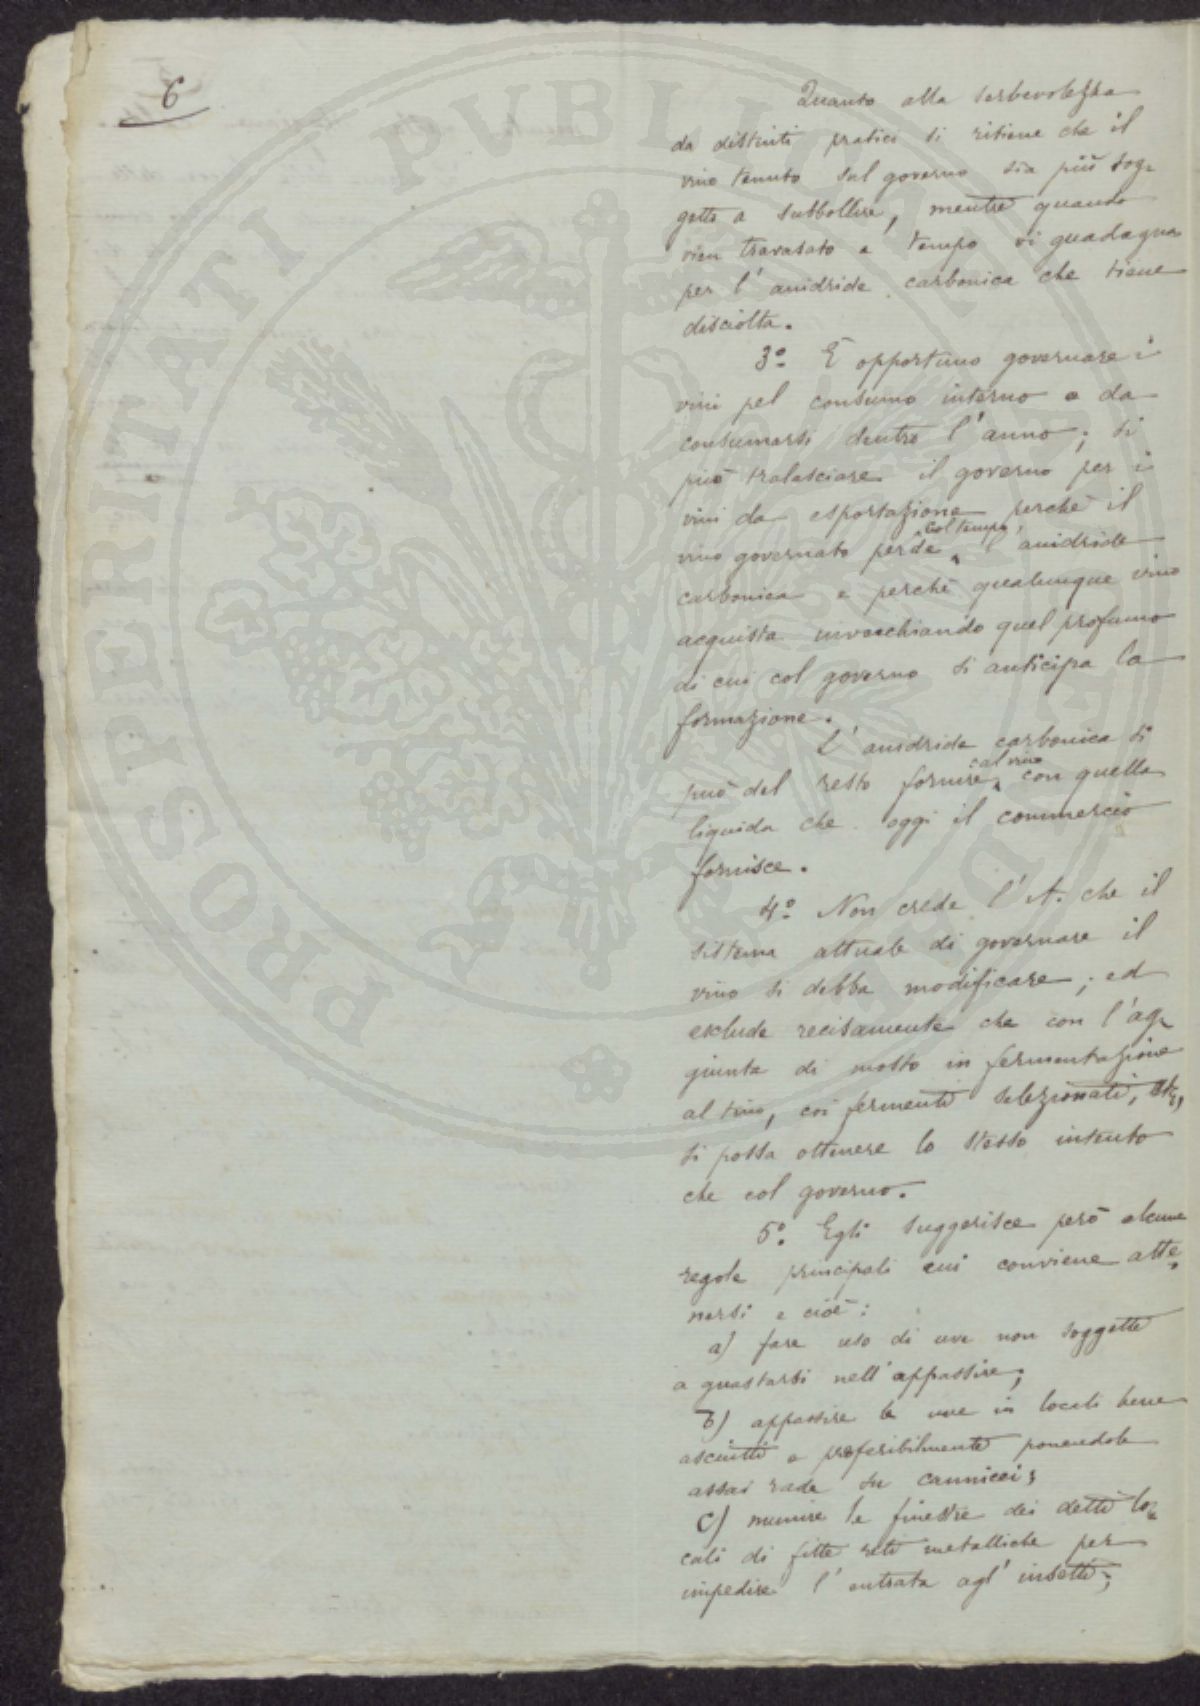 6
Quanto alla serbevolezza
da distinti pratici si ritiene che il
vino tenuto sul governo sia più sog-
getto a subbollire, mentre quando
vien travasato a tempo vi guadagna
per l'anidride carbonica che tiene
disciolta.
3º È opportuno governare i
vini pel consumo interno e da
consumarsi dentro l'anno; si
può tralasciare il governo per i
vini da esportazione perchè il
vino governato perde col tempo l'anidride
carbonica e perchè qualunque vino
acquista invecchiando quel profumo
di cui col governo si anticipa la
formazione.
L'anidride carbonica si
può del resto fornire al vino con quella
liquida che oggi il commercio
fornisce.
4º Non crede l'A. che il
sistema attuale di governare il
vino si debba modificare; ed
esclude recisamente che con l'ag-
giunta di mosto in fermentazione
al tino, coi fermenti selezionati, etc,
si possa ottenere lo stesso intento
che col governo.
5º Egli suggerisce però alcune
regole principali cui conviene atte-
nersi e cioè:
a) fare uso di uve non soggette
a guastarsi nell'appassire;
b) appassire le uve in locali bene
asciutti e preferibilmente ponendole
assai rade su cannicci;
c) munire le finestre dei detti lo-
cali di fitte reti metalliche per
impedire l'entrata agl'insetti;
PROSPERITATI PVBLICAE